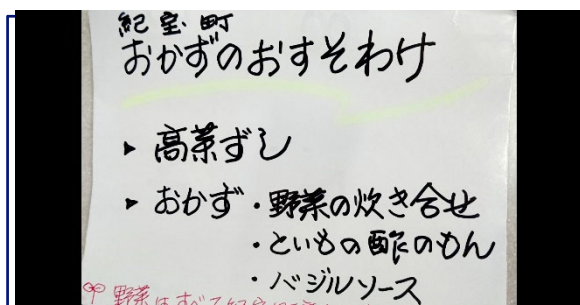 紀宝町
おかずのおすそわけ
▸ 高菜ずし
▸ おかず・野菜の炊き合せ
・といもの酢のもん
・バジルソース
野菜はすべて紀宝町